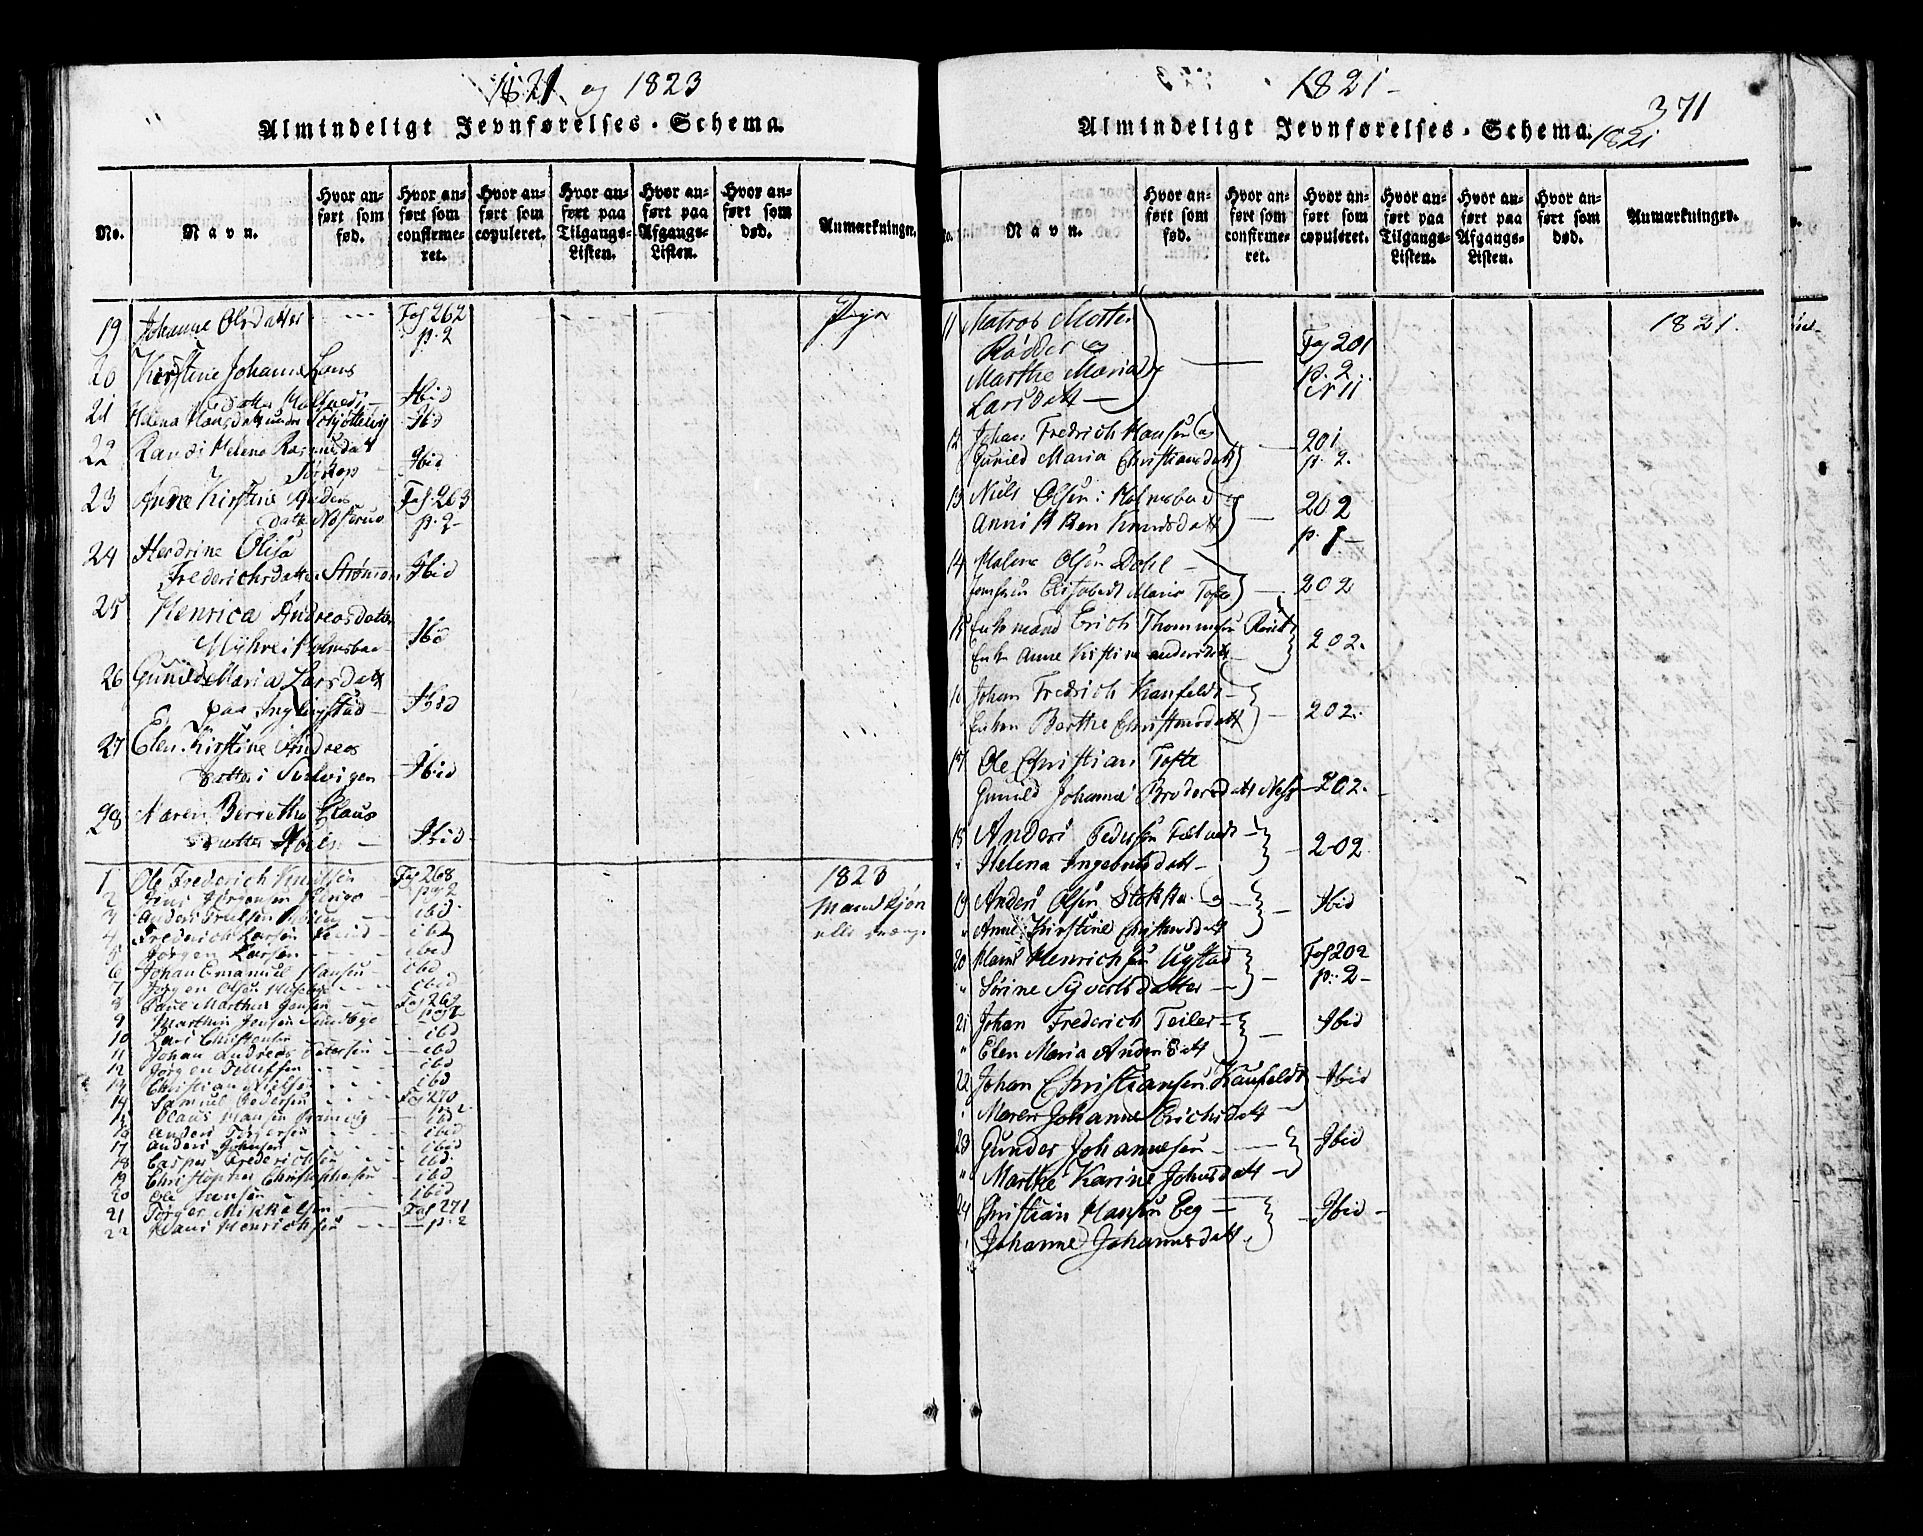 1821 og 1823
Almindeligt Jevnførelses-Schema.
No.
Navn.
Hvor anført som fød.
Hvor anført som confirmeret.
Hvor anført som copuleret.
Hvor anført paa Tilgangs-Listen.
Hvor anført paa Afgangs-Listen.
Hvor anført som død.
Anmærkninger.
19 Johanne Olsdatter --- Fol 262
p. 2
20 Kirstine Johanne Lars
datter - Ibid
21 Helena Hansdatter - Ibid
22 Randi Helena Rasmusdatt
Ibid
23 Andrea Kirstine Anders Fol 263
datter p. 2-
24 Hendrine Olisa
Frederichsdatter Strømmen Ibid
25 Henrica Andreasdatter
Myhre i Holmsboe Ibid
26 Gunild Maria Larsdatt
paa Inglingstad - Ibid
27 Elen Kirstine Andreas
datter i Selvigen - Ibid
28 Maren Berethe Claus
datter - Ibid -
1 Ole Frederich Knudsen Fol 268 1823
2 Jens Jørgensen pag 2 Mandkjøn
3 Anders Truelsen ibid
4 Frederich Larsen ibid
5 Jørgen Larsen - ibid
6 Johan Emanuel Hansen - ibid
7 Jørgen Olsen ibid
8 Paul Marthin Jensen Fol 269
9 Marthin Jensen Sundbye pag 1
10 Lars Christensen ibid
11 Johan Andreas Petersen ibd
12 Jørgen ibd
13 Christian Nilsen ibd
14 Samuel Pedersen Fol 270
15 Claus Hansen pag 2
16 Anders Torgersen ibid
17 Anders Johnsen ibid
18 Casper Frederichsen ibd.
19 Christopher Christophersen - ibd
20 Ole Jensen ibid
21 Torger Mikkelsen Fol 271
22 Hans Henrichsen - p. 2
1821 -
371
Almindeligt Jevnførelses-Schema.
1821
No.
Navn.
Hvor anført som fød.
Hvor anført som confirmeret.
Hvor anført som copuleret.
Hvor anført paa Tilgangs-Listen.
Hvor anført paa Afgangs-Listen.
Hvor anført som død.
Anmærkninger.
11 Matros 1821.
Rødder og Fol 201
Marthe Maria p. 2.
Larsdatt - N 11
12 Johan Fredrich Hansen og 201
Gunild Maria Christiansdatt p. 2.
13 Niels Olsen i Holmsboe og 202
Knudsdatt p. 1-
14 Olsen Dahl -
Jomfrue Elisabeth Maria Tofte 202
15 Enkemand Erich Thommesen
Enke Anne Kirstine Andersdatt 202.
16 Johan Fredrich Kaufeldt -
Enken Berthe Christensdatt 202.
17 Ole Christian Tofte
Gunild Johanne Brodersdatt Ness - 202. -
18 Anders Pedersen
" Helena Ingebretsdatt - 202
19 Anders Olsen Stokke - Ibid
" Anne Kirstine Christensdatt
20 Hans Henrichsen Ugstad Fol 202
" Sørine Syvertsdatter - p. 2-
21 Johan Frederich Teiler - Ibid
" Elen Maria Andersdatt
22 Johan Christiansen Kaufeldt - Ibid
Maren Johanne Erichsdatt -
23 Gunder Johannesen - Ibid
" Marthe Karine Johnsdatt -
24 Christian Hansen Eeg - - Ibid -
Johanne Johannesdatt